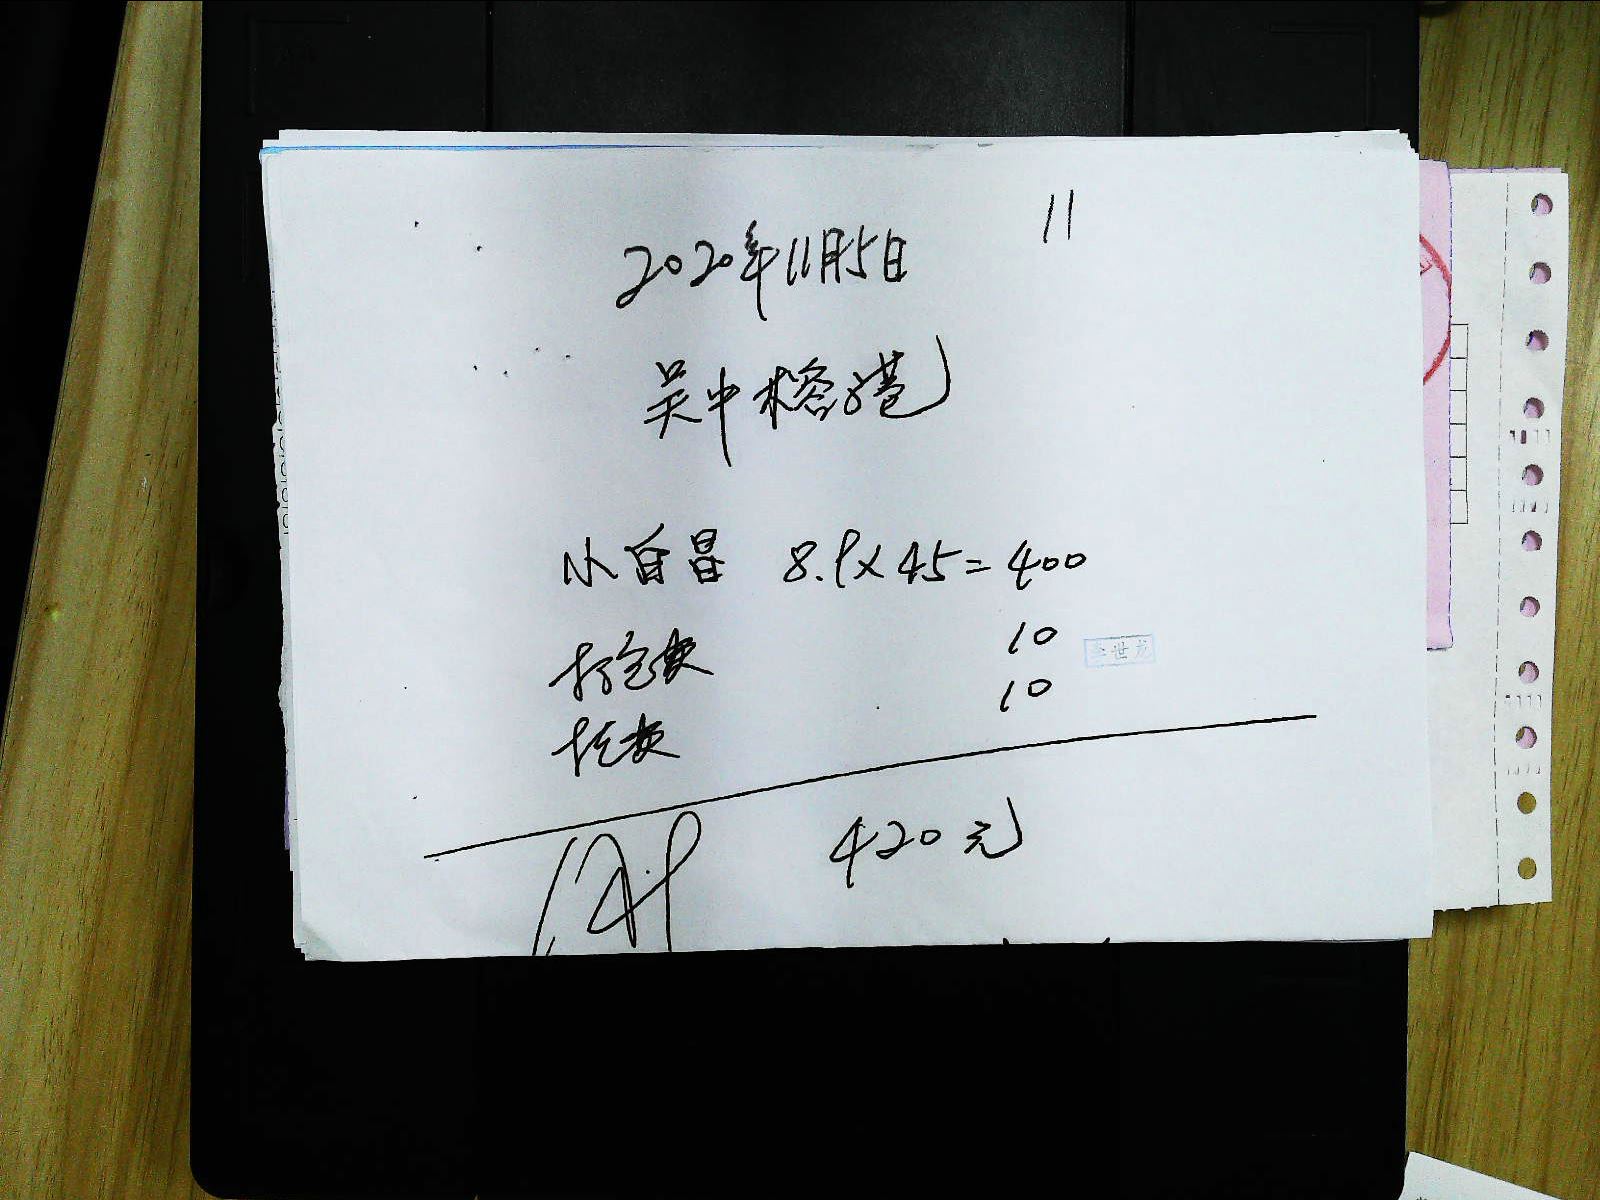 11
2020年11月5日
吴中榕港
小白昌 8.9×45=400
打包费 10
托费 10
世龙
420元